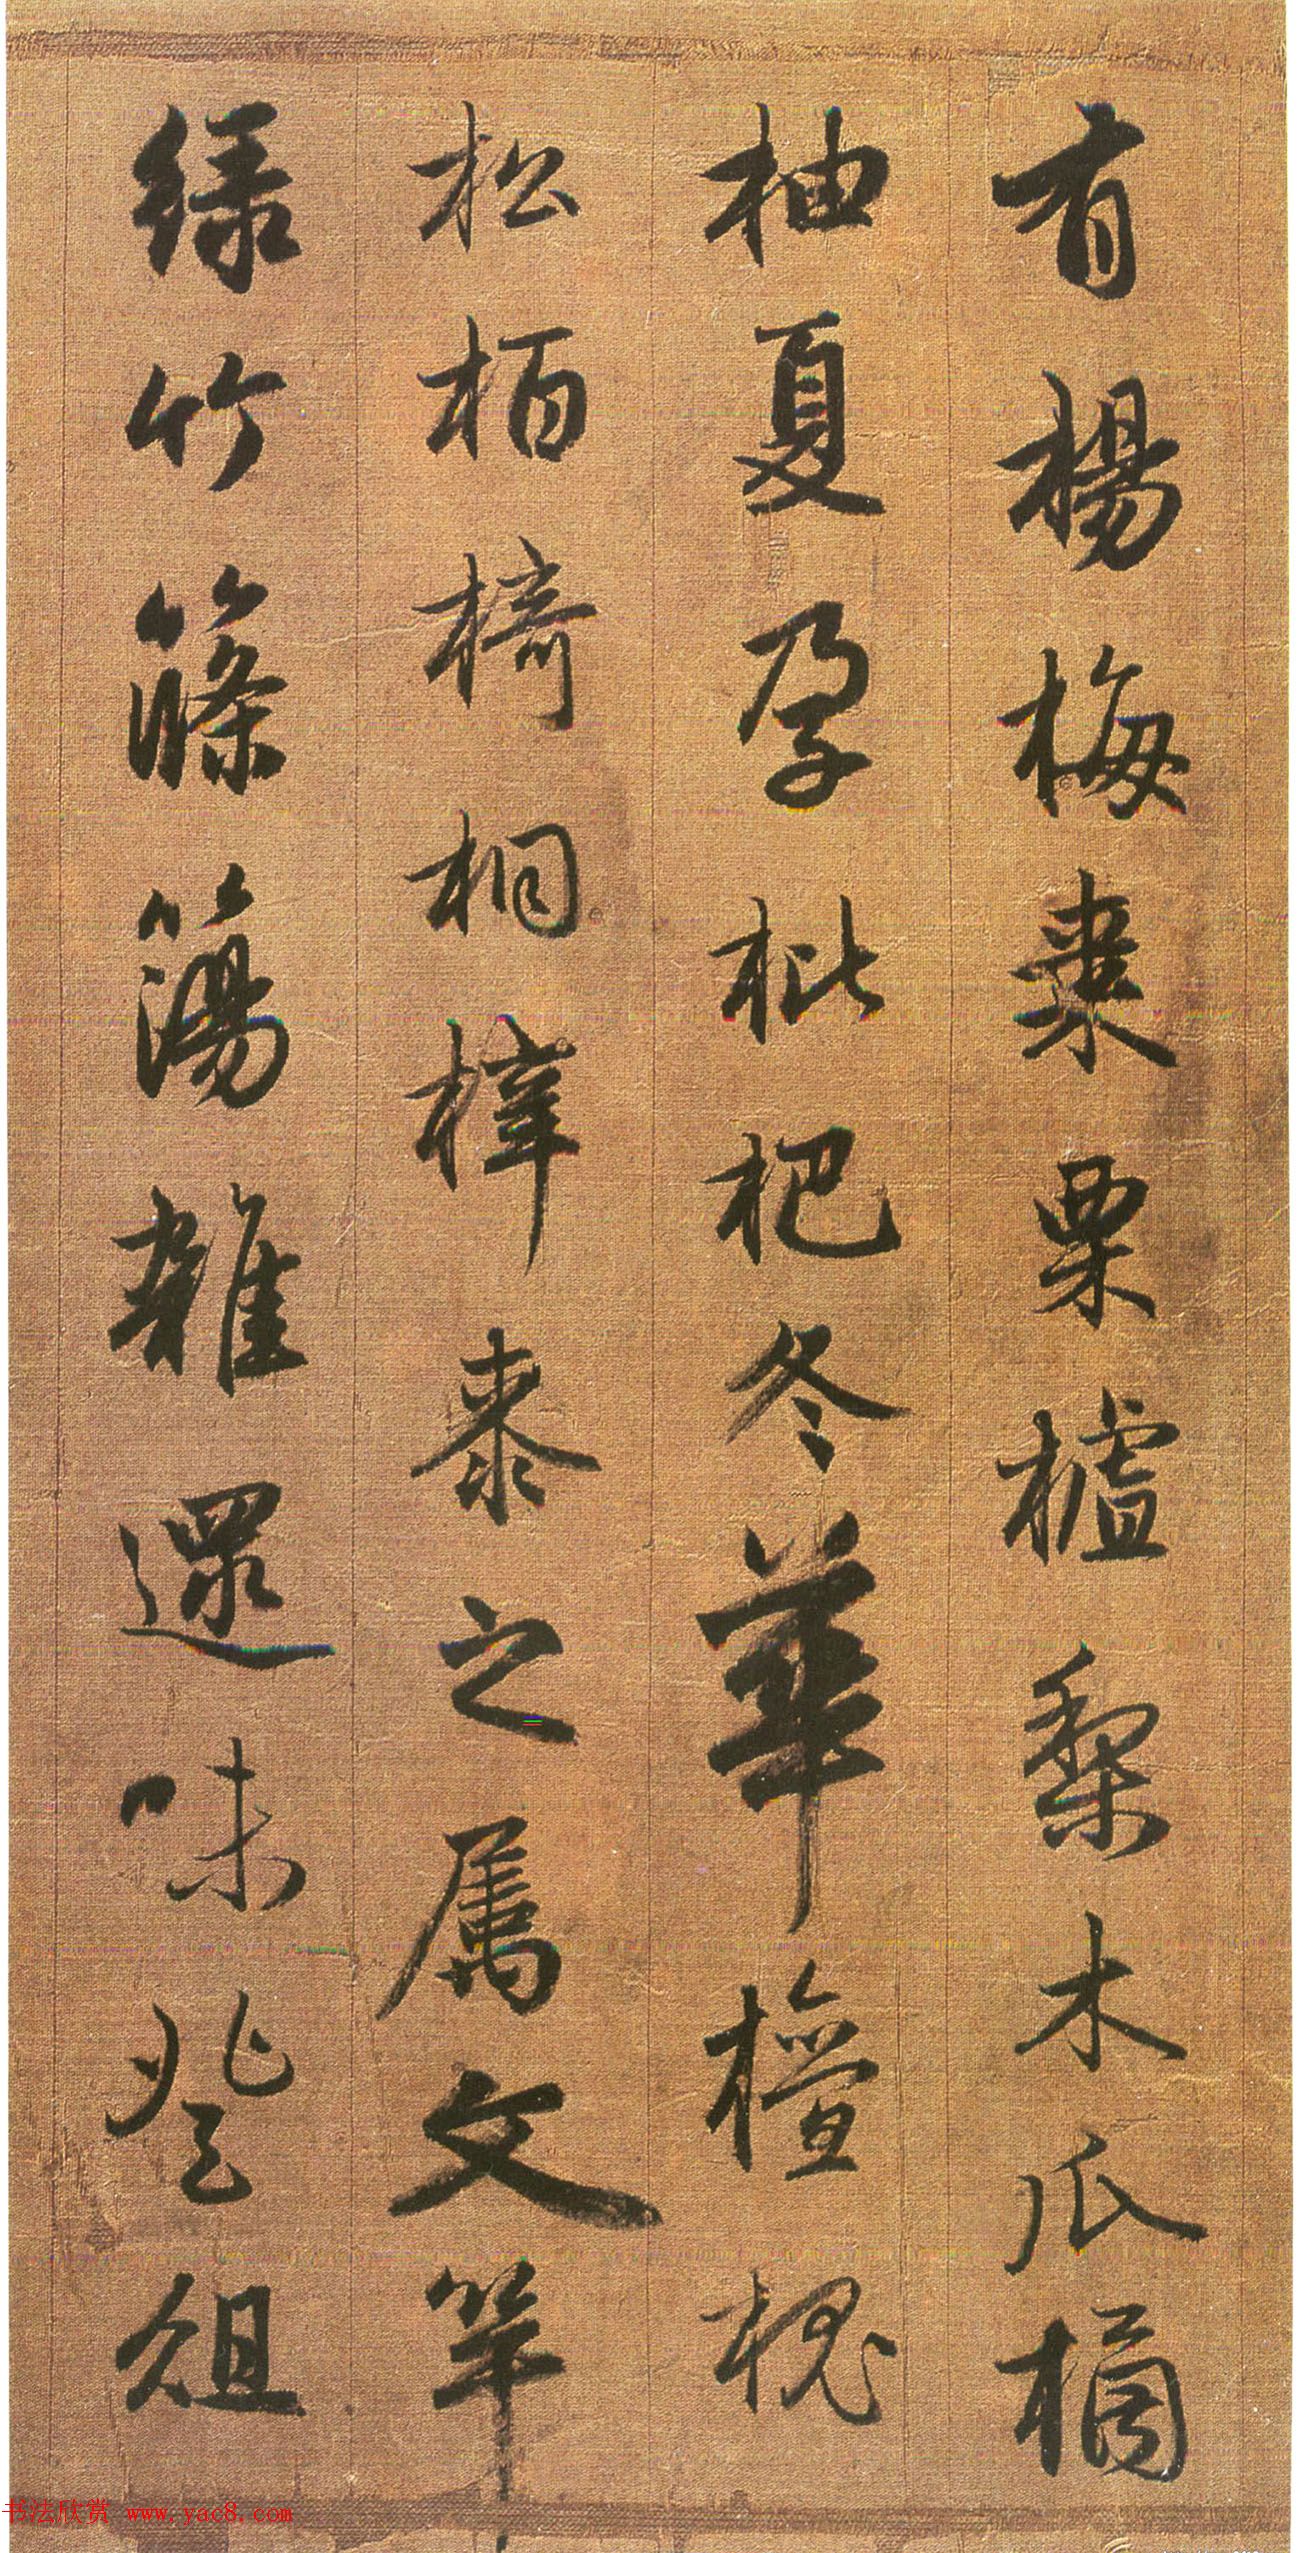 有楊梅棗栗櫨梨木瓜橘
柚夏孕枇杷冬華檀槐
松栢椅桐梓桼之属文竿
緑竹篠簜雜遝味登俎
书法欣赏 www.yac8.com